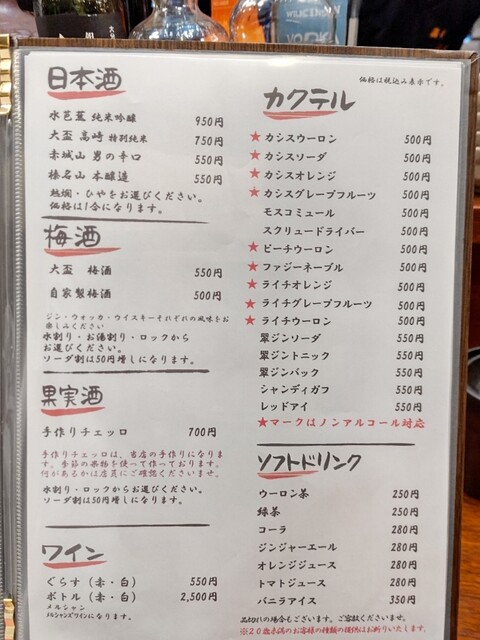 日本酒
水芭蕉 純米吟醸 950円
大盃 高崎 特別純米 750円
赤城山 男の辛口 550円
榛名山 本醸造 550円
熱燗・ひやをお選びください。
価格は1合になります。
梅酒
大盃 梅酒 550円
自家製梅酒 500円
ジン・ウォッカ・ウイスキーそれぞれの風味をお
楽しみください
水割り・お湯割り・ロックから
お選びください。
ソーダ割は50円増しになります。
果実酒
手作りチェッロ 700円
手作りチェッロは、当店の手作りになりま
す。季節の果物を使って作っております。
何があるかは店員にご確認くださいませ。
水割り・ロックからお選びください。
ソーダ割は50円増しになります。
ワイン
ぐらす（赤・白） 550円
ボトル（赤・白） 2,500円
メルシャン
メルシャンズワインになります。
価格は税込み表示です。
カクテル
★カシスウーロン 500円
★カシスソーダ 500円
★カシスオレンジ 500円
★カシスグレープフルーツ 500円
モスコミュール 500円
スクリュードライバー 500円
★ピーチウーロン 500円
★ファジーネーブル 500円
★ライチオレンジ 500円
★ライチグレープフルーツ 500円
★ライチウーロン 500円
翠ジンソーダ 550円
翠ジントニック 550円
翠ジンバック 550円
シャンディガフ 550円
レッドアイ 550円
★マークはノンアルコール対応
ソフトドリンク
ウーロン茶 250円
緑茶 250円
コーラ 280円
ジンジャーエール 280円
オレンジジュース 280円
トマトジュース 280円
バニラアイス 350円
品切れの場合もございます。ご容赦くださいませ。
※20歳未満のお客様の酒類の提供はお断りいたします。